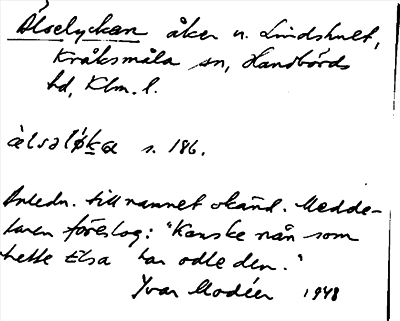 Älselyckan åker n. Lindshult,
Kråksmåla sn, Handbörds
hd, Klm. l.
ä̀lsəløka s. 186.
Anledn. till namnet okänd. Medde-
laren föreslog: "Kanske nån som
hette Elsa har odle den."
Yvar Modéer 1948